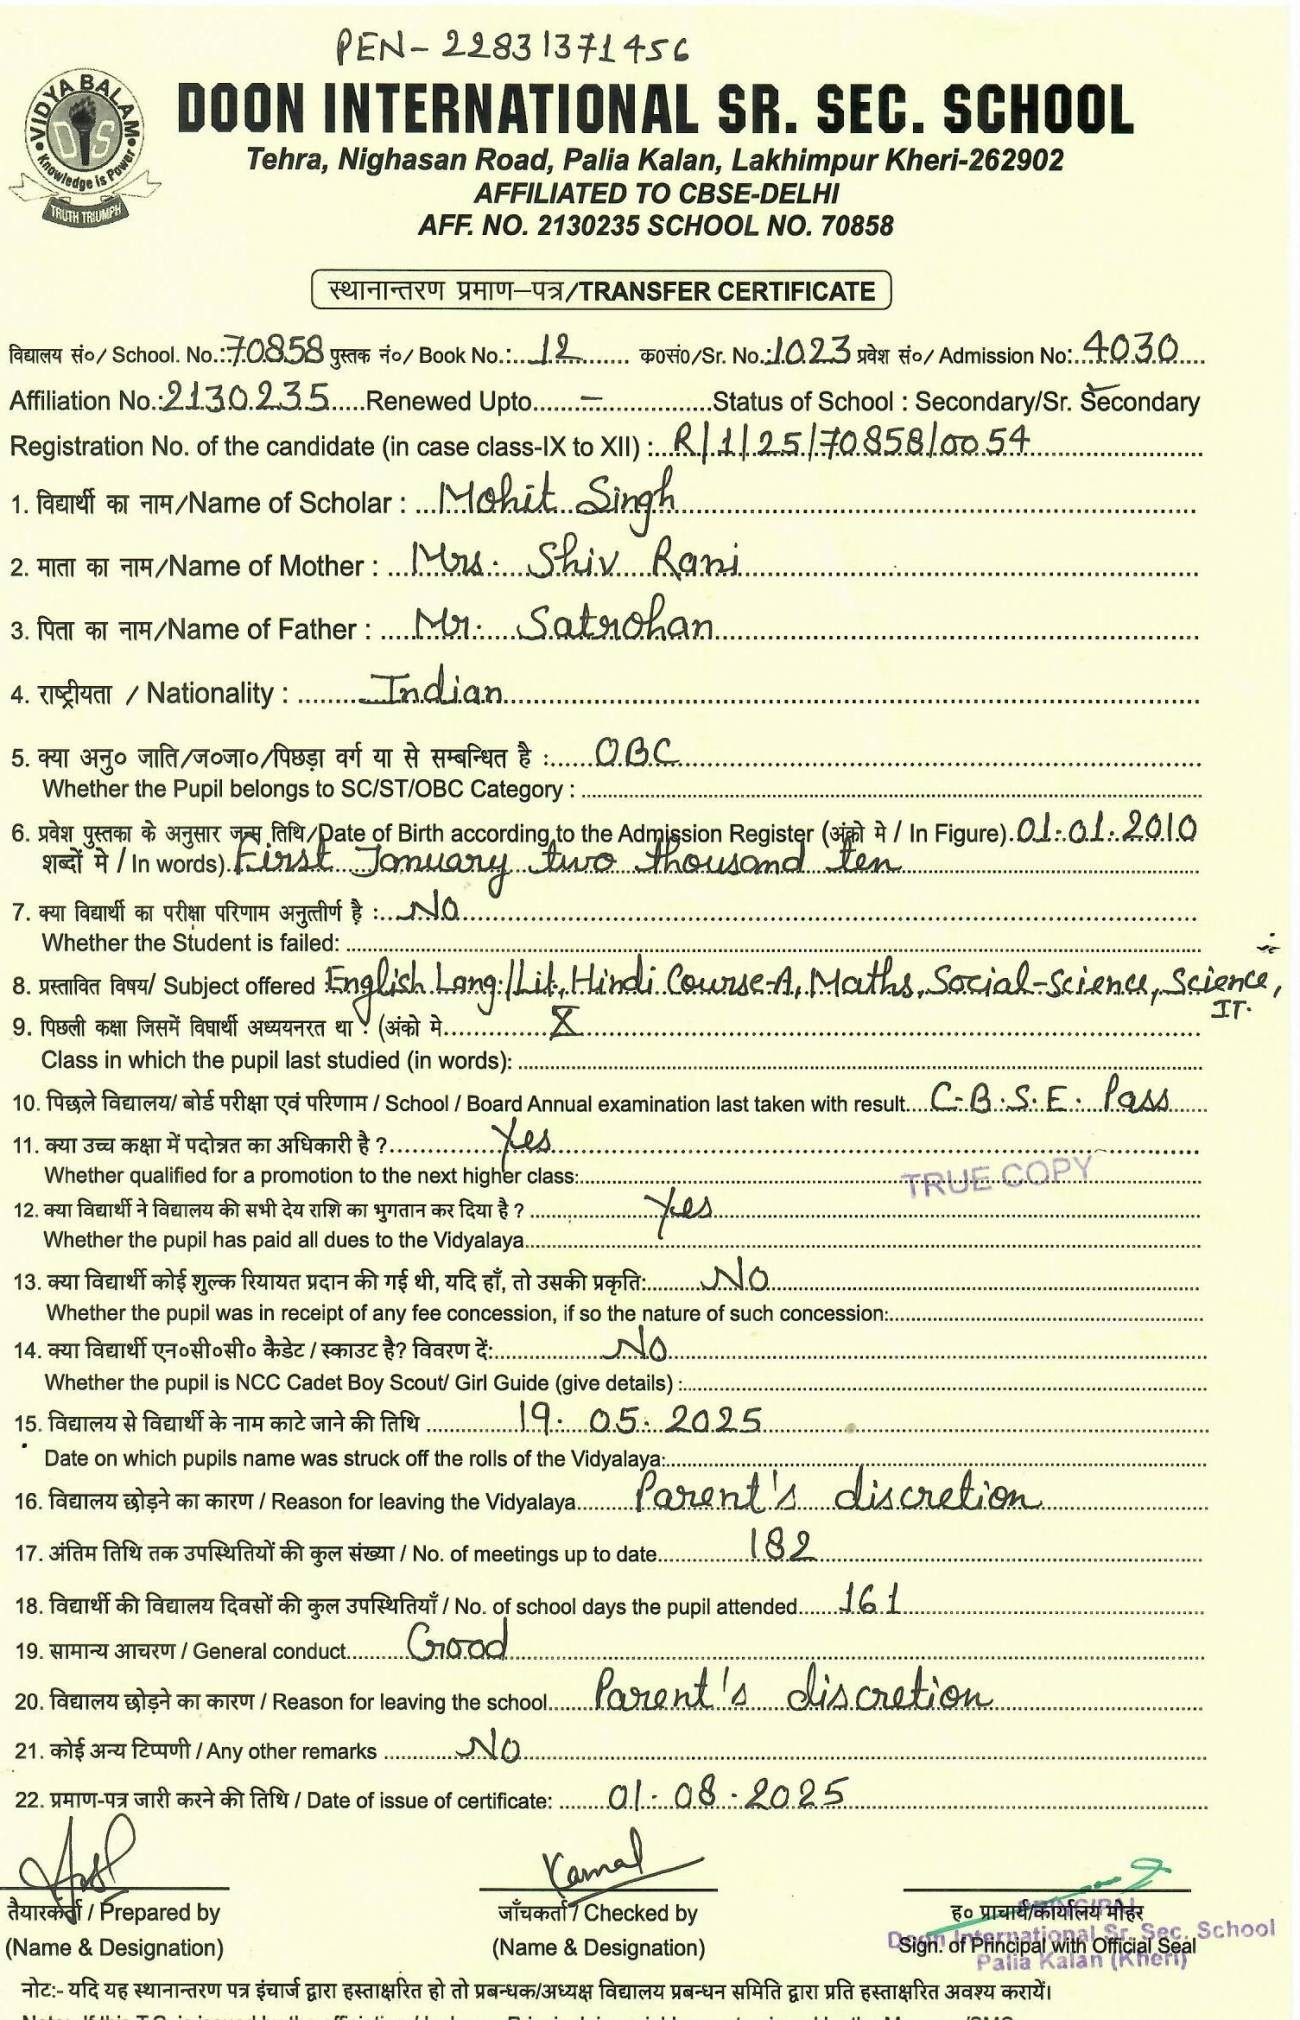 PEN- 22831371456
VIDYA BALAM
DIS
Knowledge is Power
TRUTH TRIUMPH
DOON INTERNATIONAL SR. SEC. SCHOOL
Tehra, Nighasan Road, Palia Kalan, Lakhimpur Kheri-262902
AFFILIATED TO CBSE-DELHI
AFF. NO. 2130235 SCHOOL NO. 70858
स्थानान्तरण प्रमाण–पत्र/TRANSFER CERTIFICATE
विद्यालय सं०/ School. No.:70858 पुस्तक नं०/ Book No.: 12 क०सं०/Sr. No.:1023 प्रवेश सं०/ Admission No: 4030
Affiliation No.:2130235 Renewed Upto – Status of School : Secondary/Sr. Secondary
Registration No. of the candidate (in case class-IX to XII) : R/1/25/70858/0054
1. विद्यार्थी का नाम/Name of Scholar : Mohit Singh
2. माता का नाम/Name of Mother : Mrs. Shiv Rani
3. पिता का नाम/Name of Father : Mr. Satrohan
4. राष्ट्रीयता / Nationality : Indian
5. क्या अनु० जाति/ज०जा०/पिछड़ा वर्ग या से सम्बन्धित है : OBC
Whether the Pupil belongs to SC/ST/OBC Category :
6. प्रवेश पुस्तका के अनुसार जन्म तिथि/Date of Birth according to the Admission Register (अंको मे / In Figure). 01.01.2010
शब्दों मे / In words). First January two thousand ten
7. क्या विद्यार्थी का परीक्षा परिणाम अनुत्तीर्ण है : No
Whether the Student is failed:
8. प्रस्तावित विषय/ Subject offered : English Lang./Lit., Hindi Course-A, Maths, Social-Science, Science,
IT.
9. पिछली कक्षा जिसमें विघार्थी अध्ययनरत था : (अंको मे X
Class in which the pupil last studied (in words):
10. पिछले विद्यालय/ बोर्ड परीक्षा एवं परिणाम / School / Board Annual examination last taken with result C.B.S.E. Pass
11. क्या उच्च कक्षा में पदोन्नत का अधिकारी है ? Yes
Whether qualified for a promotion to the next higher class:
TRUE COPY
12. क्या विद्यार्थी ने विद्यालय की सभी देय राशि का भुगतान कर दिया है ? Yes
Whether the pupil has paid all dues to the Vidyalaya
13. क्या विद्यार्थी कोई शुल्क रियायत प्रदान की गई थी, यदि हाँ, तो उसकी प्रकृति: No
Whether the pupil was in receipt of any fee concession, if so the nature of such concession:
14. क्या विद्यार्थी एन०सी०सी० कैडेट / स्काउट है? विवरण दें: No
Whether the pupil is NCC Cadet Boy Scout/ Girl Guide (give details) :
15. विद्यालय से विद्यार्थी के नाम काटे जाने की तिथि 19. 05. 2025
Date on which pupils name was struck off the rolls of the Vidyalaya:
16. विद्यालय छोड़ने का कारण / Reason for leaving the Vidyalaya Parent's discretion
17. अंतिम तिथि तक उपस्थितियों की कुल संख्या / No. of meetings up to date 182
18. विद्यार्थी की विद्यालय दिवसों की कुल उपस्थितियाँ / No. of school days the pupil attended 161
19. सामान्य आचरण / General conduct Good
20. विद्यालय छोड़ने का कारण / Reason for leaving the school Parent's discretion
21. कोई अन्य टिप्पणी / Any other remarks No
22. प्रमाण-पत्र जारी करने की तिथि / Date of issue of certificate: 01. 08. 2025
Kamal
तैयारकर्ता / Prepared by जाँचकर्ता / Checked by ह० प्राचार्य/कार्यालय मोहर
(Name & Designation) (Name & Designation) Sign. of Principal with Official Seal
PRINCIPAL
Doon International Sr. Sec. School
Palia Kalan (Kheri)
नोट:- यदि यह स्थानान्तरण पत्र इंचार्ज द्वारा हस्ताक्षरित हो तो प्रबन्धक/अध्यक्ष विद्यालय प्रबन्धन समिति द्वारा प्रति हस्ताक्षरित अवश्य करायें।